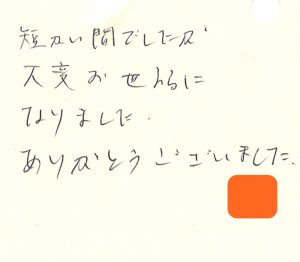 短かい間でしたが
大変お世話に
なりました.
ありがとうございました.